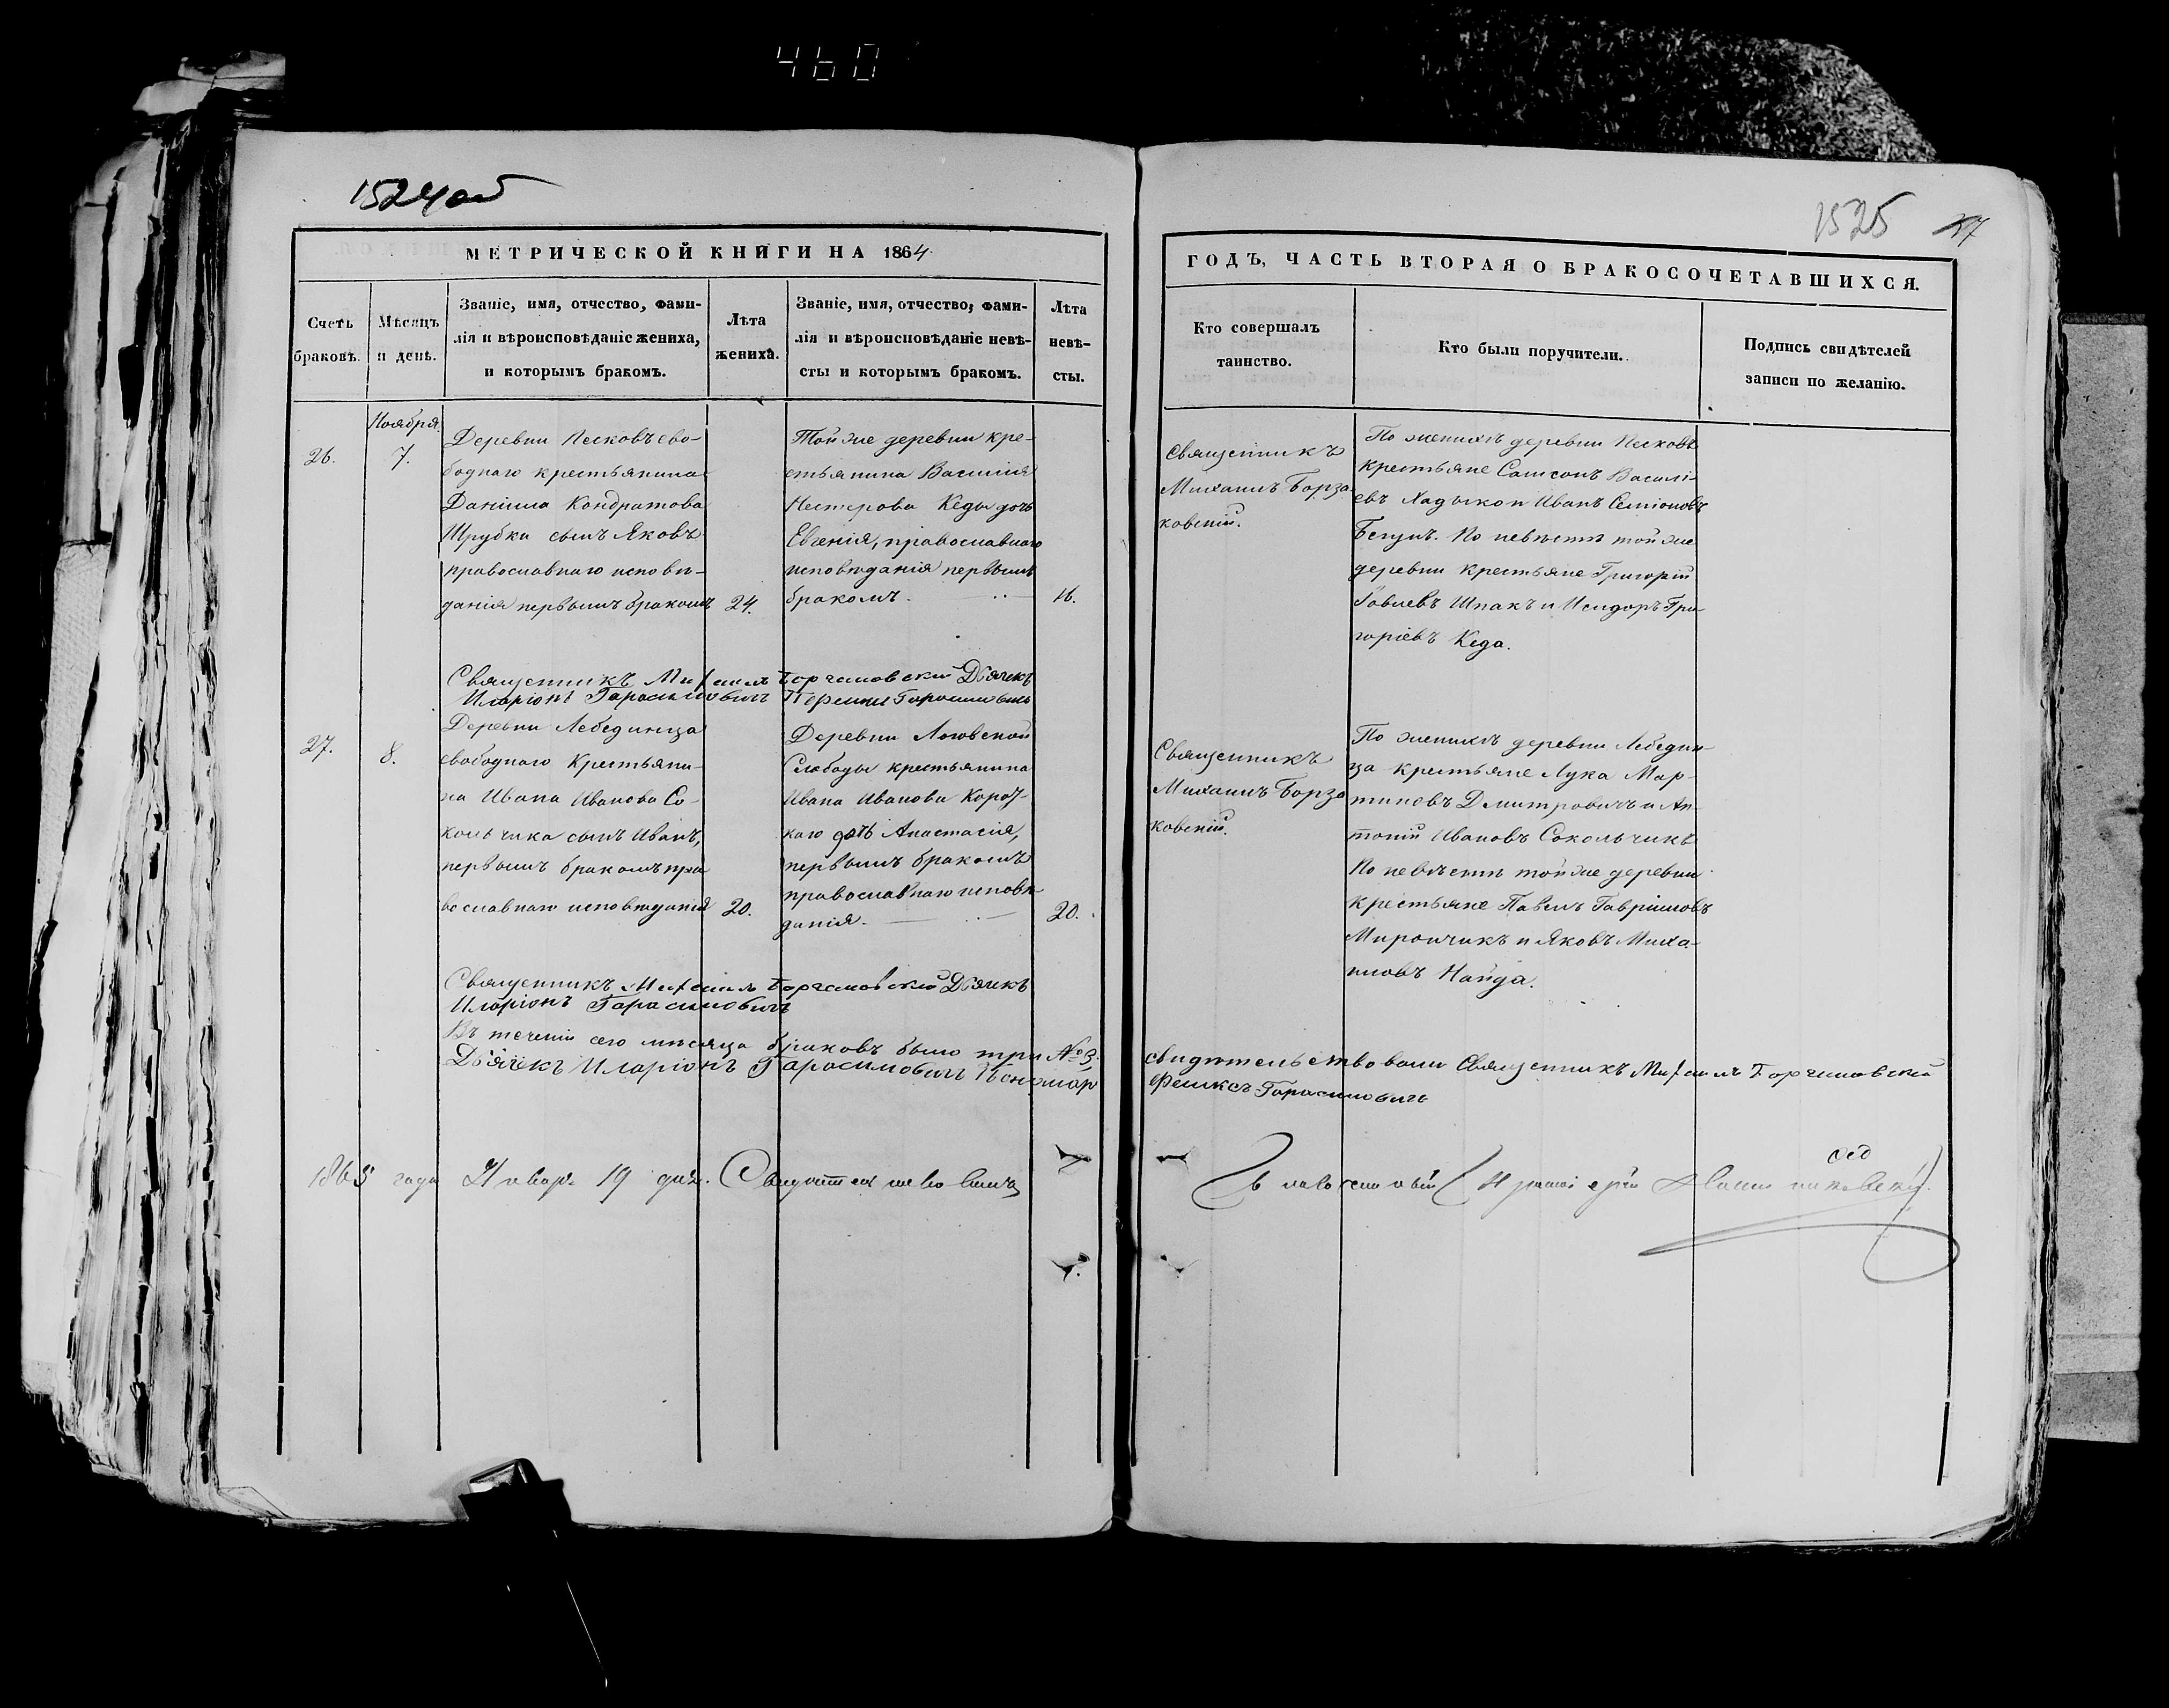 460
1524 об
1525
МЕТРИЧЕСКОЙ КНИГИ НА 1864
ГОДЪ, ЧАСТЬ ВТОРАЯ О БРАКОСОЧЕТАВШИХСЯ.
Счетъ
браковъ.
Мѣсяцъ
и день.
Званіе, имя, отчество, фами-
лія и вѣроисповѣданіе жениха,
и которымъ бракомъ.
Лѣта
жениха.
Званіе, имя, отчество, фами-
лія и вѣроисповѣданіе невѣ-
сты и которымъ бракомъ.
Лѣта
невѣ-
сты.
Кто совершалъ
таинство.
Кто были поручители.
Подпись свидѣтелей
записи по желанію.
26.
Ноября
7.
Деревни Песковъ сво-
боднаго крестьянина
Даніила Кондратова
Шрубки сынъ Яковъ
православнаго исповѣ-
данія первымъ бракомъ
24.
Той же деревни кре-
стьянина Василія
Нестерова Кеды дочь
Евгенія, православнаго
исповѣданія первымъ
бракомъ.
16.
Священникъ
Михаилъ Борза-
ковскій.
По женихѣ деревни Песковъ
крестьяне Самсонъ Василі-
евъ Ладыко и Иванъ Семіоновъ
Бегунъ. По невѣстѣ той же
деревни крестьяне Григорій
Шпакъ и Исидоръ Гри-
горіевъ Кеда.
Священникъ Михаилъ Дьячекъ
Иларіонъ Гарасимовичъ Гарасимовичъ
27.
8.
Деревни Лебединца
свободнаго Крестьяни-
на Ивана Иванова Со-
кольчика сынъ Иванъ,
первымъ бракомъ пра-
вославнаго исповѣданія
20.
Деревни Логовской
Слободы крестьянина
Ивана Иванова Корот-
каго дочь Анастасія,
первымъ бракомъ
православнаго исповѣ-
данія.
20.
Священникъ
Михаилъ Борза
ковскій.
По женихѣ деревни Лебедин-
ца крестьяне Лука Мар-
тиновъ Дмитровичъ и Ан-
тоній Ивановъ Сокольчикъ
По невѣстѣ той же деревни
крестьяне Павелъ Гавріиловъ
Мирончикъ и Яковъ Миха-
иловъ Найда.
Священникъ Михаилъ Дьячекъ
Иларіонъ Гарасимовичъ
Въ теченіи сего мѣсяца браковъ было три №3.
свидѣтельствовали Священникъ Михаилъ
Дьячекъ Иларіонъ Гарасимовичъ Пономар
Феликсъ Гарасимовичъ
1865 года Январ 19 дня. Свидѣтельствовалъ
Благочинный Протоіерей